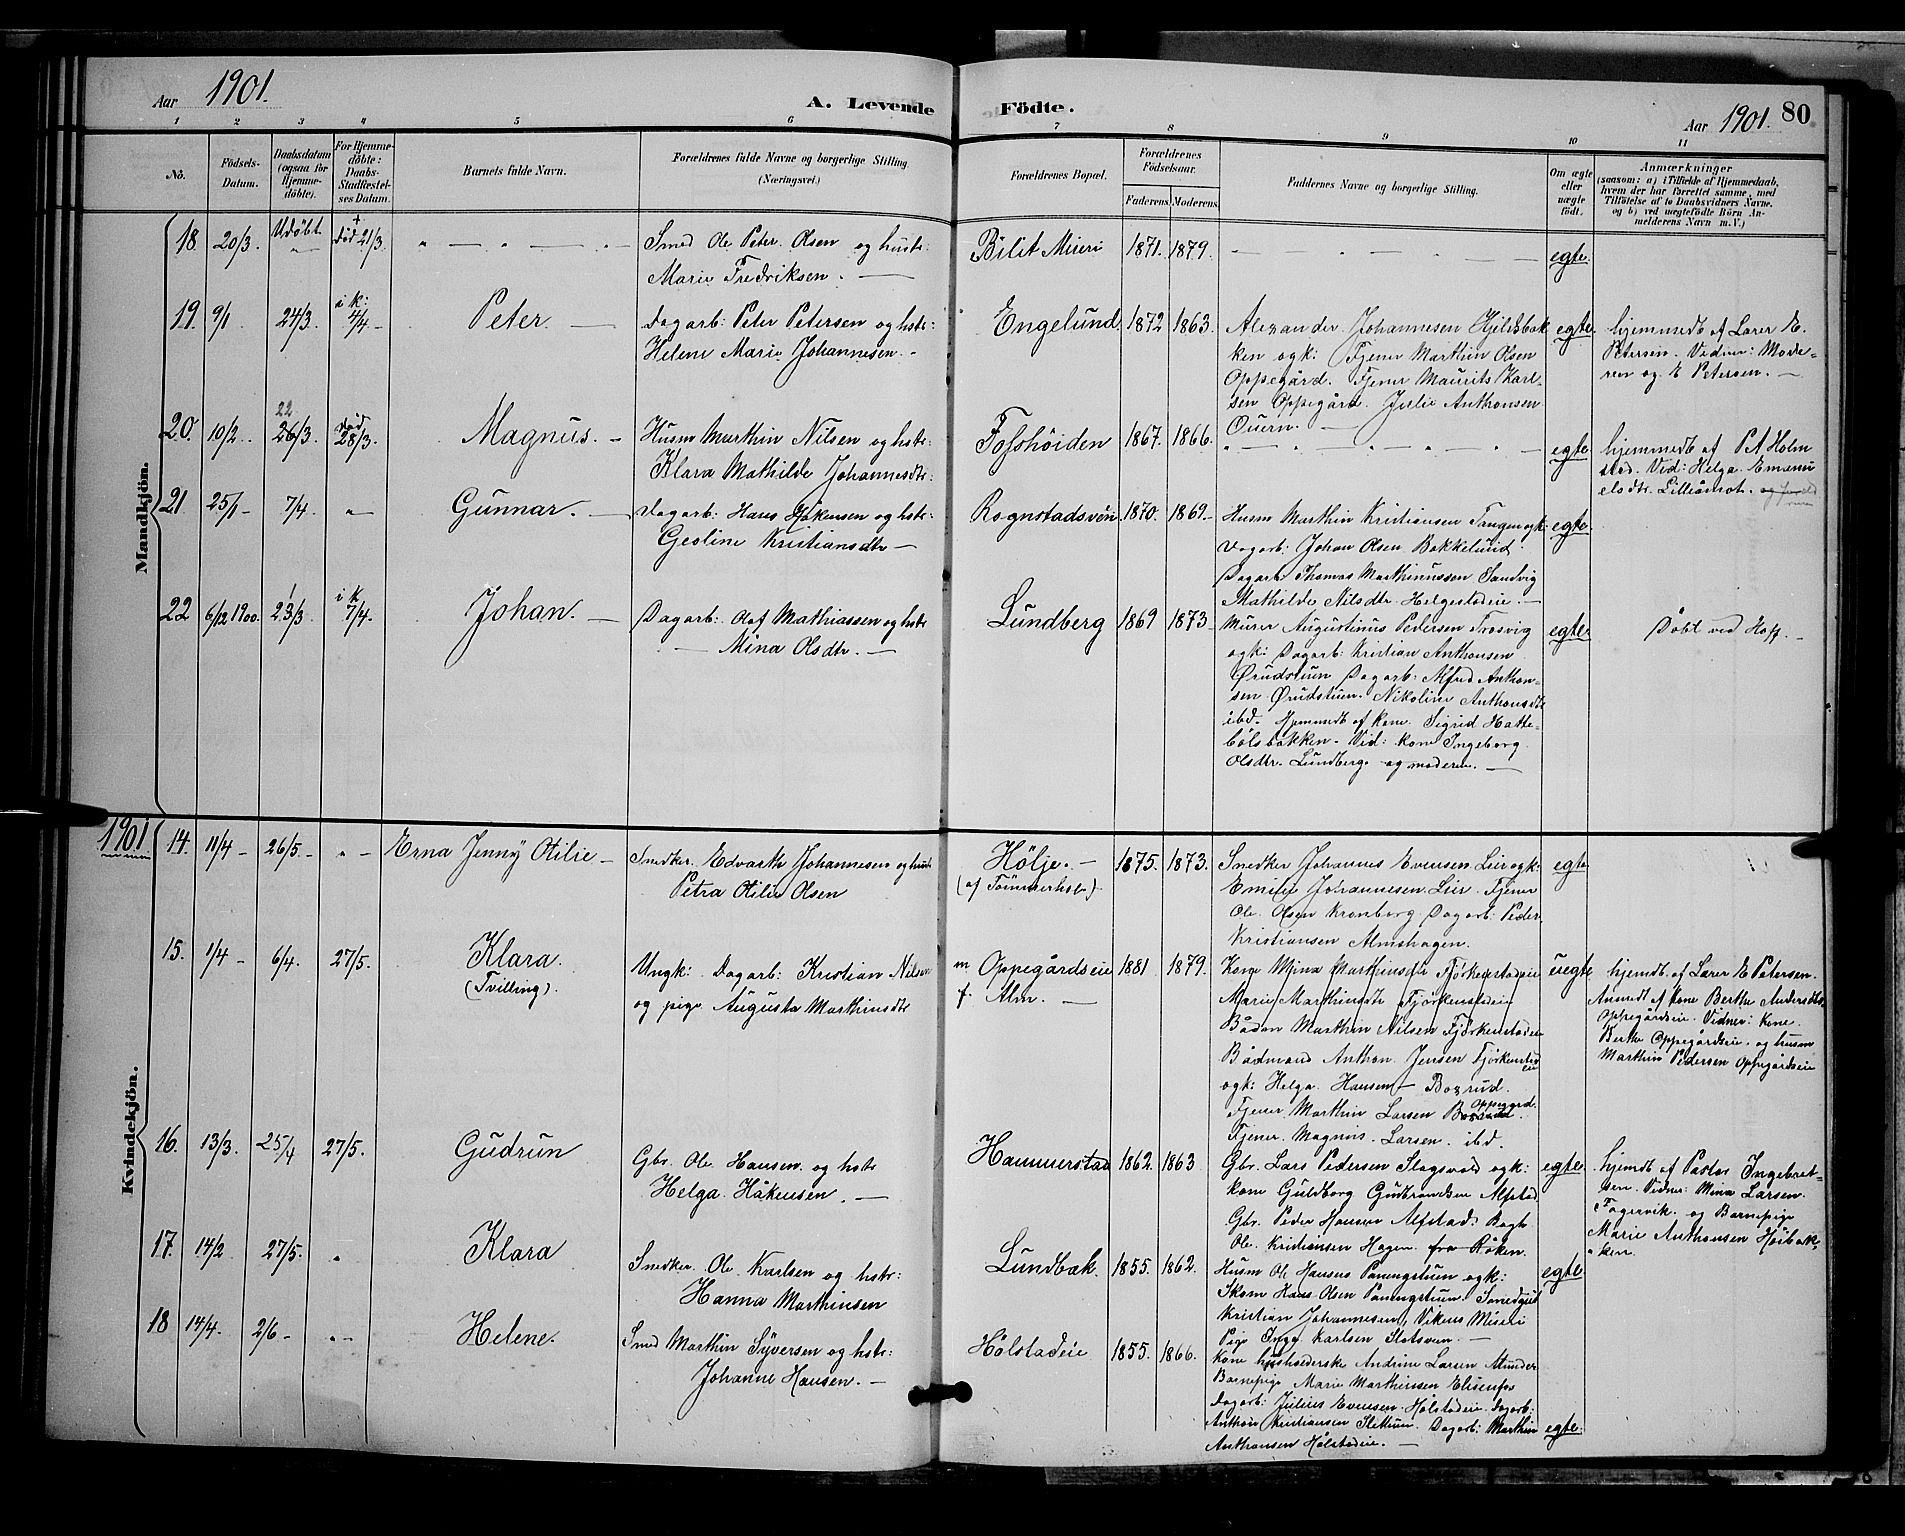 Aar 1901.
A. Levende Födte.
Aar 1901. 80
1 2 3 4 5 6 7 8 9 10 11
No.
Födsels-Datum.
Daabsdatum (ogsaa for Hjemmedöbte).
For Hjemmedöbte: Daabs-Stadfæstelses Datum.
Barnets fulde Navn.
Forældrenes fulde Navne og borgerlige Stilling. (Næringsvei.)
Forældrenes Bopæl.
Forældrenes Födselsaar.
Faderens. Moderens.
Faddernes Navne og borgerlige Stilling.
Om ægte eller uægte födt.
Anmærkninger (saasom: a) i Tilfælde af Hjemmedaab, hvem der har forrettet samme, med Tilföielse af to Daabsvidners Navne. og b) ved uægtefödte Börn Anmelderens Navn m. V.)
Mandkjön.
18 20/3. Udöbt + död 21/3.
Smed Ole Peter Olsen og hustr:
Marie Fredriksen.
Bilit Mueri 1871. 1879. egte.
19. 9/1 24/3. i k: 4/4 Peter.
Dagarb: Peter Petersen og hstr:
Helene Marie Johannesen.
Engelund 1872 1863.
Alexander Johannesen Hjeldsbak
ken ogk: Tjener Marthin Olsen
Oppegård. Tjener Maurits Karl-
sen Oppegård. Julie Anthonsen
Quern.
egte.
hjemmedt af Lærer E.
Petersen. Vidner: Mode-
ren og E Petersen.
20. 10/2. 22 26/3. död 28/3. Magnus.
Husm Marthin Nilsen og hstr:
Klara Mathilde Johannesdtr:
Fosshöiden 1867. 1866. egte
hjemmedt af P A Holm
stad. Vid: Helga Emanu
elsdtr. Lilleåmot.
21. 25/1 7/4. Gunnar.
Dagarb: Hans Håkensen og hstr:
Geoline Kristiansdtr
Rognstadsven 1870. 1869.
Husm Marthin Kristiansen Tangen ogk:
Dagarb: Johan Olsen Bakkelund.
Dagarb Thomas Marthinussen Sandvig
Mathilde Nilsdtr. Helgestadeie.
egte.
22 6/12 1900. 23/3. i k 7/4. Johan.
Dagarb: Olaf Mathiassen og hstr
Mina Olsdtr.
Lundberg 1869 1873
Murer Augustinus Pedersen Trosvig
ogk: Dagarb: Kristian Anthonsen
Ørudstuen Dagarb: Alfred Anthon-
sen Ørudstuen. Nikoline Anthonsdtr
ibd. Hjemmedt af kone Sigrid Hatte-
bölsbakken. Vid: kone Ingeborg
Olsdtr. Lundberg. og moderen.
egte
Döbt ved Hoff.
1901
Kvindekjön.
14. 11/4 26/5. Erna Jenny Otilie
Snedker. Edvarth Johannesen og hustr
Petra Otilie Olsen
Hölje. 1875. 1873.
Snedker Johannes Evensen Leir ogk:
Emilie Johannesen Leir. Tjener
Ole Olsen Kronborg. Dagarb: Peder
Kristiansen Almshagen.
egte
15. 1/4 6/4. 27/5. Klara.
(Tvilling).
Ungk: Dagarb: Kristian Nilsen
og pige Augusta Marthinsdtr
m Oppegårdseie
f. Alm.
1881. 1879.
Kone Mina Marthinsdtr Fjörkenstadeie
Marie Marthinsdtr Fjörkenstadeie
Båden Marthin Nilsen Fjörkenstadeie
Bådmand Anthon Jensen Fjörkenstad
eie
ogk: Helga Hansen Bosrud.
Tjener Marthin Larsen Oppegard.
Tjener Magnus Larsen. ibd.
uegte
hjemdt. af Lærer E Petersen.
Anmedt af kone Berthe Andersdtr
Oppegårdseie. Vidner: kone
Berthe Oppegårdseie. og husm
Marthin Pedersen Oppegårdseie
16. 13/3. 25/4 27/5. Gudrun
Gbr. Ole Hansen og hstr
Helga Håkensen.
Hammerstad 1862. 1863
Gbr. Lars Pedersen Slagsvold ogk:
kone Guldborg Gudbrandsen Alfstad
Gbr. Peder Hansen Alfstad. Bagh
Ole Kristiansen Hagen fra Röken.
egte.
hjemdt af Pastor Ingebret-
sen. Vidner: Mina Larsen.
Fagervik. og Barnepige
Marie Anthonsen Höibak-
ken.
17. 14/2 27/5. Klara
Snedker. Ole Karlsen og hstr:
Hanna Marthinsen
Lundbæk. 1855. 1862.
Husm Ole Hansen Panengstuen ogk:
Skom Hans Olsen Panengstuen. Smedgut
Kristian Johannesen, Vikens Miseli
Pige Inga Karlsen Slotsven.
egte
18 14/4. 2/6 Helene.
Smed Marthin Syversen og hstr:
Johanne Hansen.
Hölstadeie 1855. 1866.
Kone husholderske Andrine Larsen
Barnepige Marie Marthinsen Elisenfos
Dagarb: Julius Evensen Hölstadeie. dagarb:
Anthon Kristiansen Slettum. Dagarb: Marthin
Anthonsen Hölstadeie.
egte.